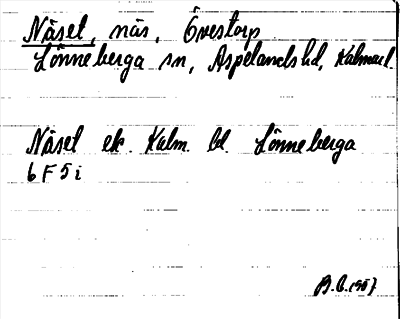 Näset, näs, Övestorp
Lönneberga sn, Aspelands hd, Kalmar l.
Näset ek. Kalm. bl. Lönneberga
6 F 5 i